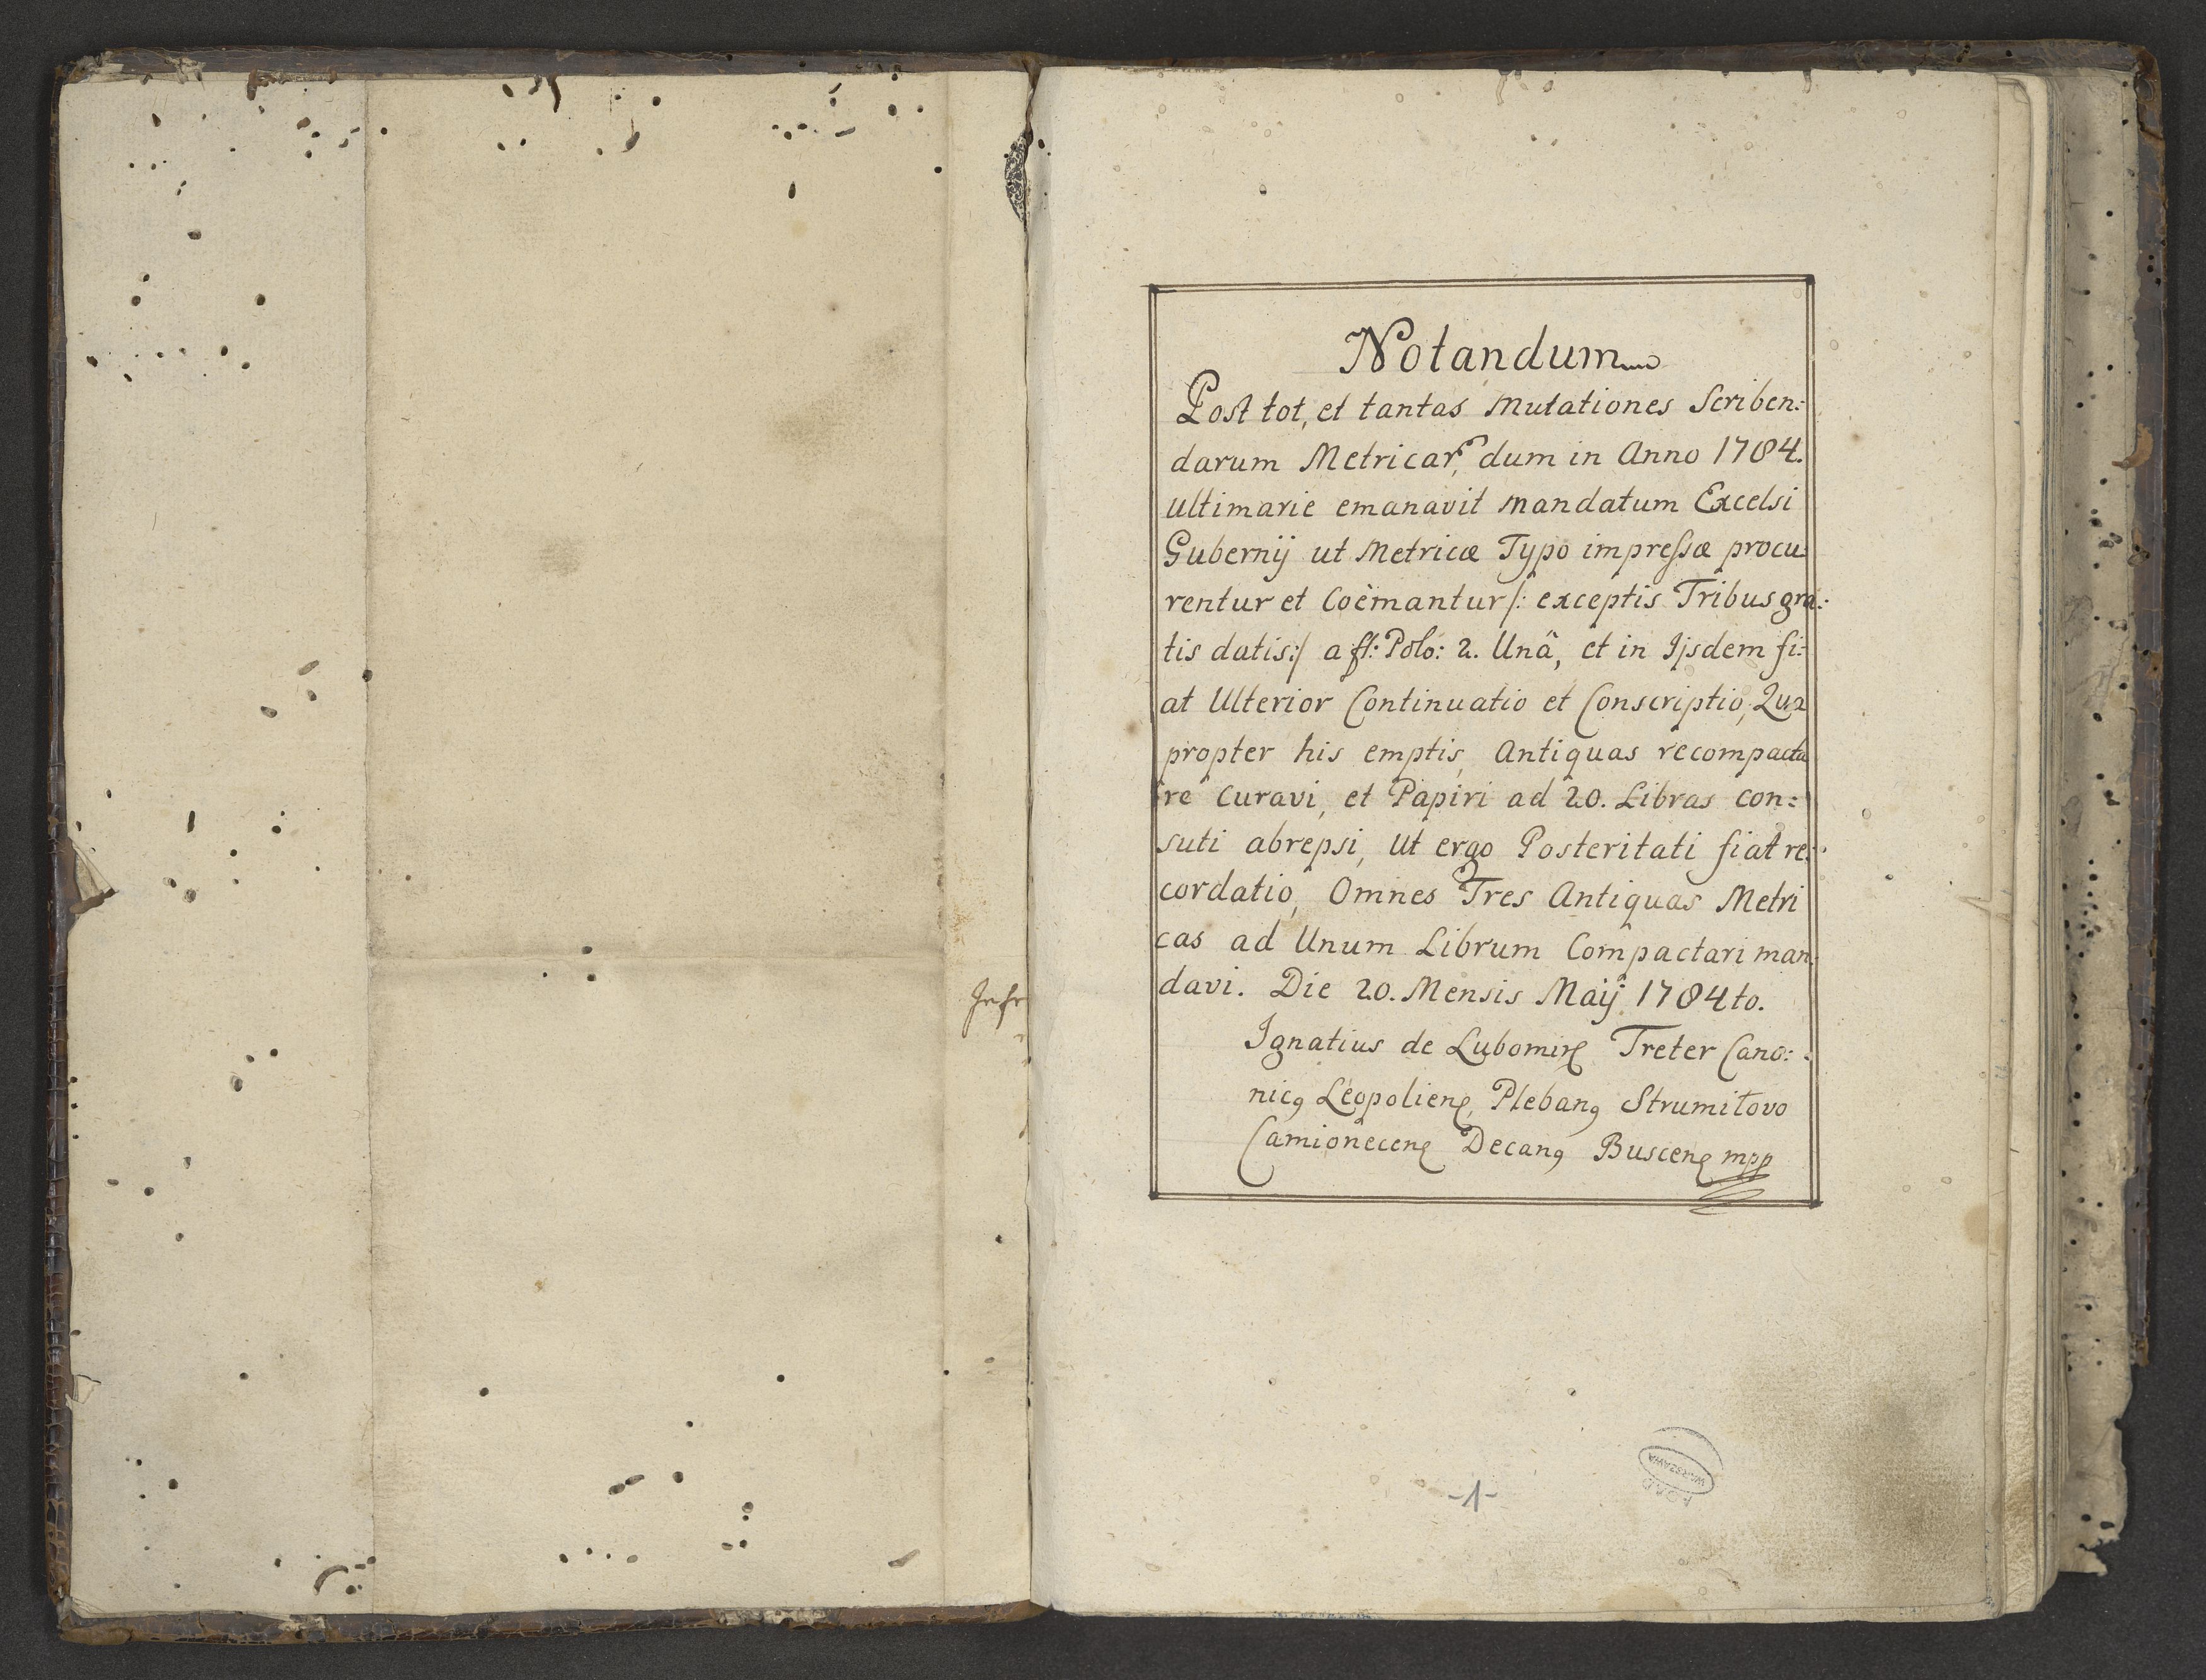 Notandum
Post tot, et tantas Mutationes Scriben:
darum Metricar, dum in Anno 1784.
ultimarie emanavit mandatum Excelsi
Gubernij ut Metricæ Typo impressæ procu:
rentur et Coëmantur /: exceptis Tribus gra:
tis datis :/ a fl: Polo: 2. Unâ, et in Ijsdem fi:
at Ulterior Continuatio et Conscriptio, Qua
propter his emptis, Antiquas recompacta
re curavi, et Papiri ad 20. Libras con:
suti abrepsi, ut ergo Posteritati fiat re:
cordatio, Omnes Tres Antiquas Metri
cas ad Unum Librum Compactari man:
davi. Die 20. Mensis Maij 1784to.
Ignatius de Lubomirz Treter Cano:
nicꝰ Leopolienꝭ, Plebanꝰ Strumitovo
Camionecenꝭ Decanꝰ Buscenꝭ mpp
-1-
AGAD
WARSZAWA